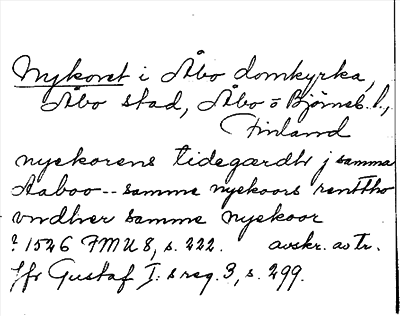 Nykoret i Åbo domkyrka,
Åbo stad, Åbo o Björneb. l.,
Finland
nyekorens tidegærdh j samma
Aaboo -- samme nyekoors rentthe
vndher samme nyekoor
? 1526 FMU 8, s. 222. avskr. av tr.
Jfr Gustaf I:s reg. 3, s. 299.